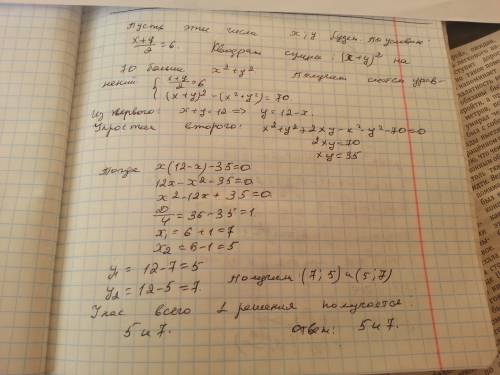 Пусть эти числа x и y будем. По условию
x+y/2 = 6. Квадрат суммы: (x+y)² на
70 больше x²+y² Получим систему урав-
нений { x+y/2 = 6
(x+y)² - (x²+y²) = 70.
Из первого: x+y=12 => y=12-x.
Упростим второго: x²+y²+2xy-x²-y²-70=0
2xy=70
xy=35
Тогда x(12-x)-35=0
12x-x²-35=0
x²-12x+35=0
D/4=36-35=1
x₁=6+1=7
x₂=6-1=5
y₁=12-7=5
y₂=12-5=7. Получим (7; 5) и (5; 7)
У нас всего 1 решения получается:
5 и 7. Ответ: 5 и 7.